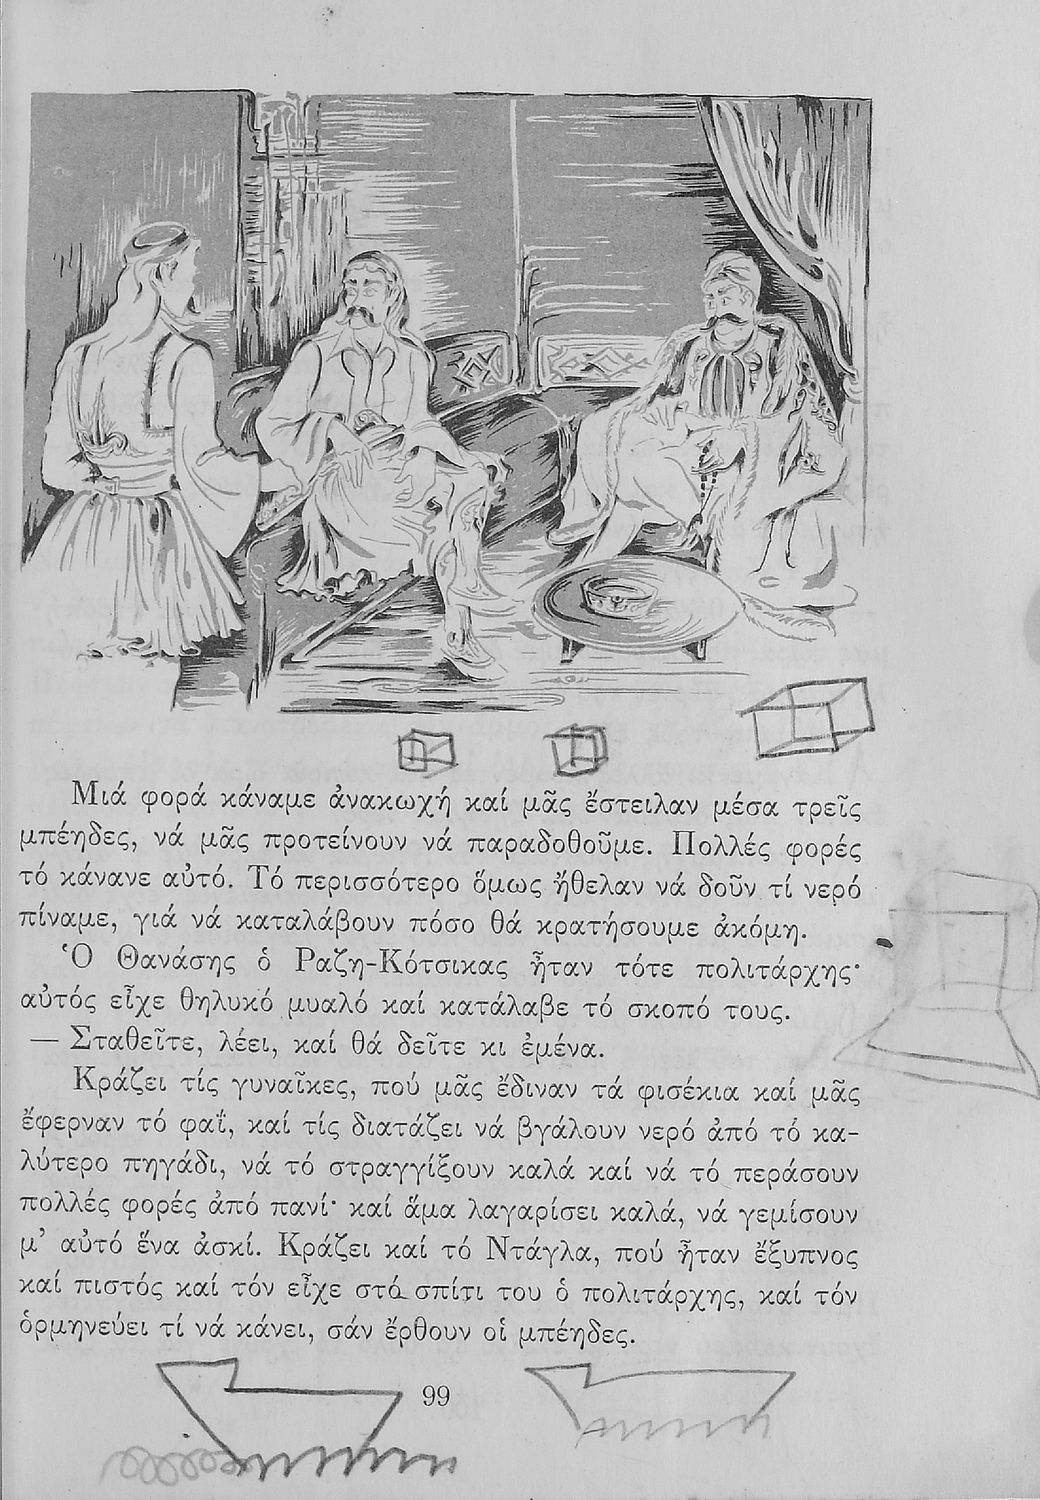 Μιά φορά κάναμε ἀνακωχή καί μᾶς ἔστειλαν μέσα τρεῖς
μπέηδες, νά μᾶς προτείνουν νά παραδοθοῦμε. Πολλές φορές
τό κάνανε αὐτό. Τό περισσότερο ὅμως ἤθελαν νά δοῦν τί νερό
πίναμε, γιά νά καταλάβουν πόσο θά κρατήσουμε ἀκόμη.
Ὁ Θανάσης ὁ Ραζη-Κότσικας ἦταν τότε πολιτάρχης·
αὐτός εἶχε θηλυκό μυαλό καί κατάλαβε τό σκοπό τους.
— Σταθεῖτε, λέει, καί θά δεῖτε κι ἐμένα.
Κράζει τίς γυναῖκες, πού μᾶς ἔδιναν τά φισέκια καί μᾶς
ἔφερναν τό φαΐ, καί τίς διατάζει νά βγάλουν νερό ἀπό τό κα-
λύτερο πηγάδι, νά τό στραγγίξουν καλά καί νά τό περάσουν
πολλές φορές ἀπό πανί· καί ἅμα λαγαρίσει καλά, νά γεμίσουν
μ' αὐτό ἕνα ἀσκί. Κράζει καί τό Ντάγλα, πού ἦταν ἔξυπνος
καί πιστός καί τόν εἶχε στό σπίτι του ὁ πολιτάρχης, καί τόν
ὁρμηνεύει τί νά κάνει, σάν ἔρθουν οἱ μπέηδες.
99